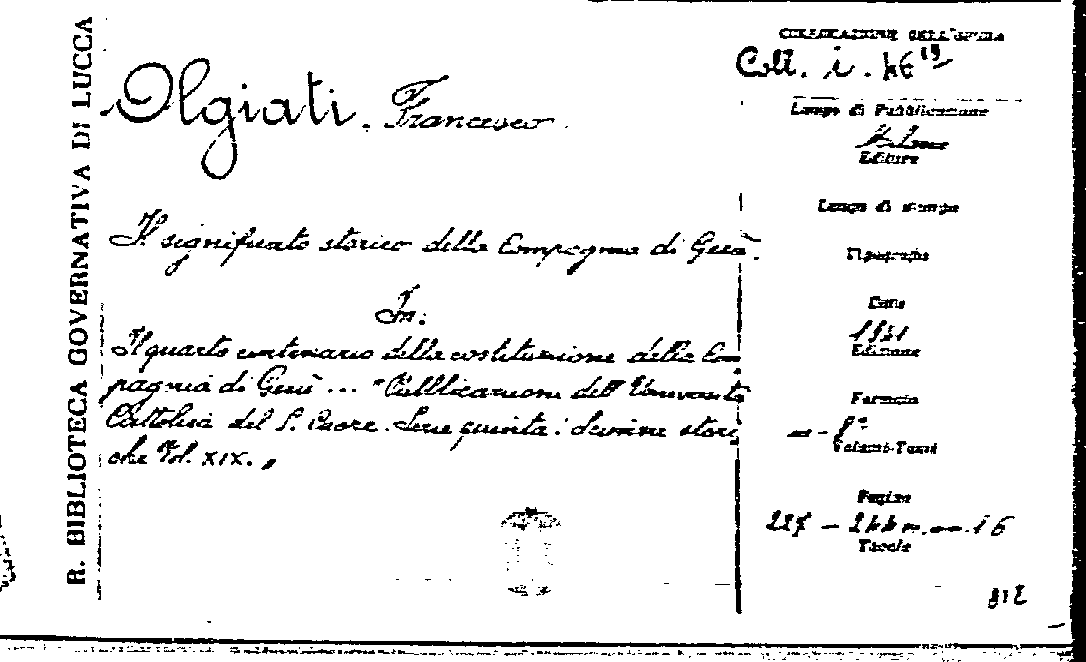 R. BIBLIOTECA GOVERNATIVA DI LUCCA
COLLOCAZIONE DELL'OPERA
Coll. i.
Olgiati, Francesco
Luogo di Pubblicazione
Milano
Editore
Luogo di stampa
Il significato storico della Compagnia di Gesù.
Tipografia
In:
Data
1941
Il quarto centenario della costituzione della Com
Edizione
pagnia di Gesù ... "Pubblicazioni dell'Università
Formato
Cattolica del S. Cuore. Serie quinta: Scienze stori
in-8°
Volumi-Tomi
che Vol. XIX.„
Pagine
227 - 244
Tavole